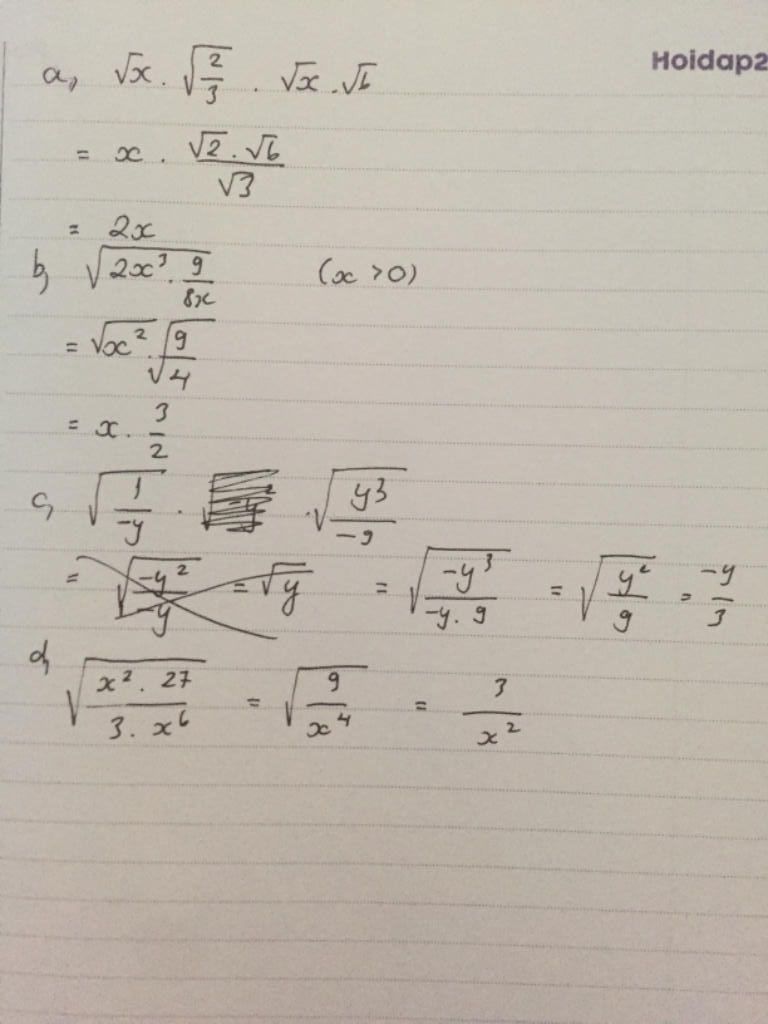 Hoidap2
a, √x . √(2/3) . √x . √6
= x . (√2 . √6)/√3
= 2x
b, √(2x³ . 9/8x) (x > 0)
= √x² . √(9/4)
= x . 3/2
c, √(1/-y) . . √(y3/-9)
= √(-y²/-y) = √y = √(-y³/(-y . 9)) = √(y²/9) = -y/3
d, √((x² . 27)/(3 . x⁶)) = √(9/x⁴) = 3/x²